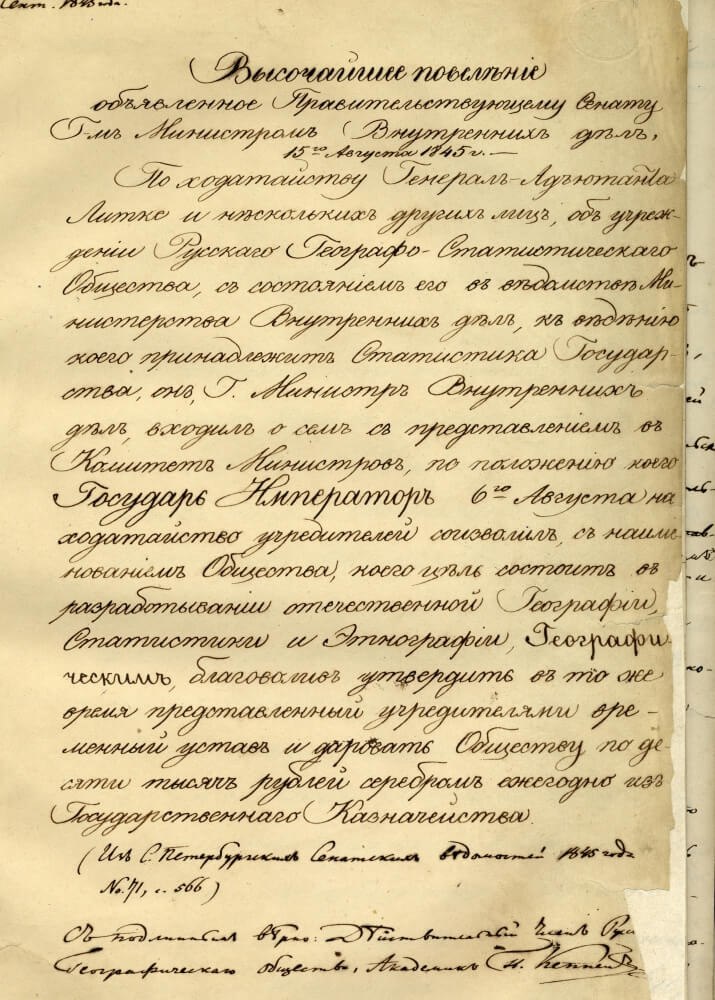 Сент. 1848 года.
Высочайшее повелѣніе
объявленное Правительствующему Сенату
Г-мъ Министромъ Внутреннихъ дѣлъ,
15го Августа 1845 г. —
По ходатайству Генералъ-Адъютанта
Литке и нѣсколькихъ другихъ лицъ, объ учреж-
деніи Русскаго Географо-Статистическаго
Общества, съ состояніемъ его въ вѣдомствѣ Ми-
нистерства Внутреннихъ дѣлъ, къ вѣдѣнію
коего принадлежитъ Статистика Государ-
ства, онъ, Г. Министръ Внутреннихъ
дѣлъ, входилъ о семъ съ представленіемъ въ
Комитетъ Министровъ, по положенію коего
Государь Императоръ 6го Августа на
ходатайство учредителей соизволилъ, съ наиме-
нованіемъ Общества, коего цѣль состоитъ въ
разработываніи отечественной Географіи,
Статистики и Этнографіи, Географи-
ческимъ, благоволивъ утвердить въ то же
время представленный учредителями вре-
менный уставъ и даровать Обществу по де-
сяти тысячъ рублей серебромъ ежегодно изъ
Государственнаго Казначейства.
(Изъ С. Петербургскихъ Сенатскихъ вѣдомостей 1845 года
No. 71, с. 566)
Съ подлиннымъ вѣрно: Дѣйствительный Членъ Рус
Географическаго общества, Академикъ П. Кеппенъ